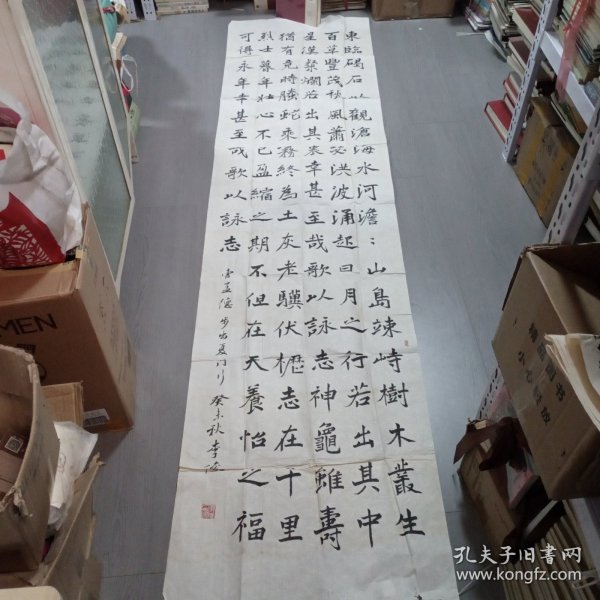 東臨碣石以觀滄海水河澹：山島竦峙樹木叢生
百草豐茂秋風蕭瑟洪波涌起日月之行若出其中
星漢粲爛若出其裏幸甚至哉歌以詠志神龜雖壽
猶有竟時騰蛇乘霧終為土灰老驥伏櫪志在千里
烈士暮年壯心不已盈縮之期不但在天養怡之福
可得永年幸甚至哉歌以詠志
曹孟德步出夏門行 癸未秋李
MEN
孔夫子旧书网
www.kongfz.com